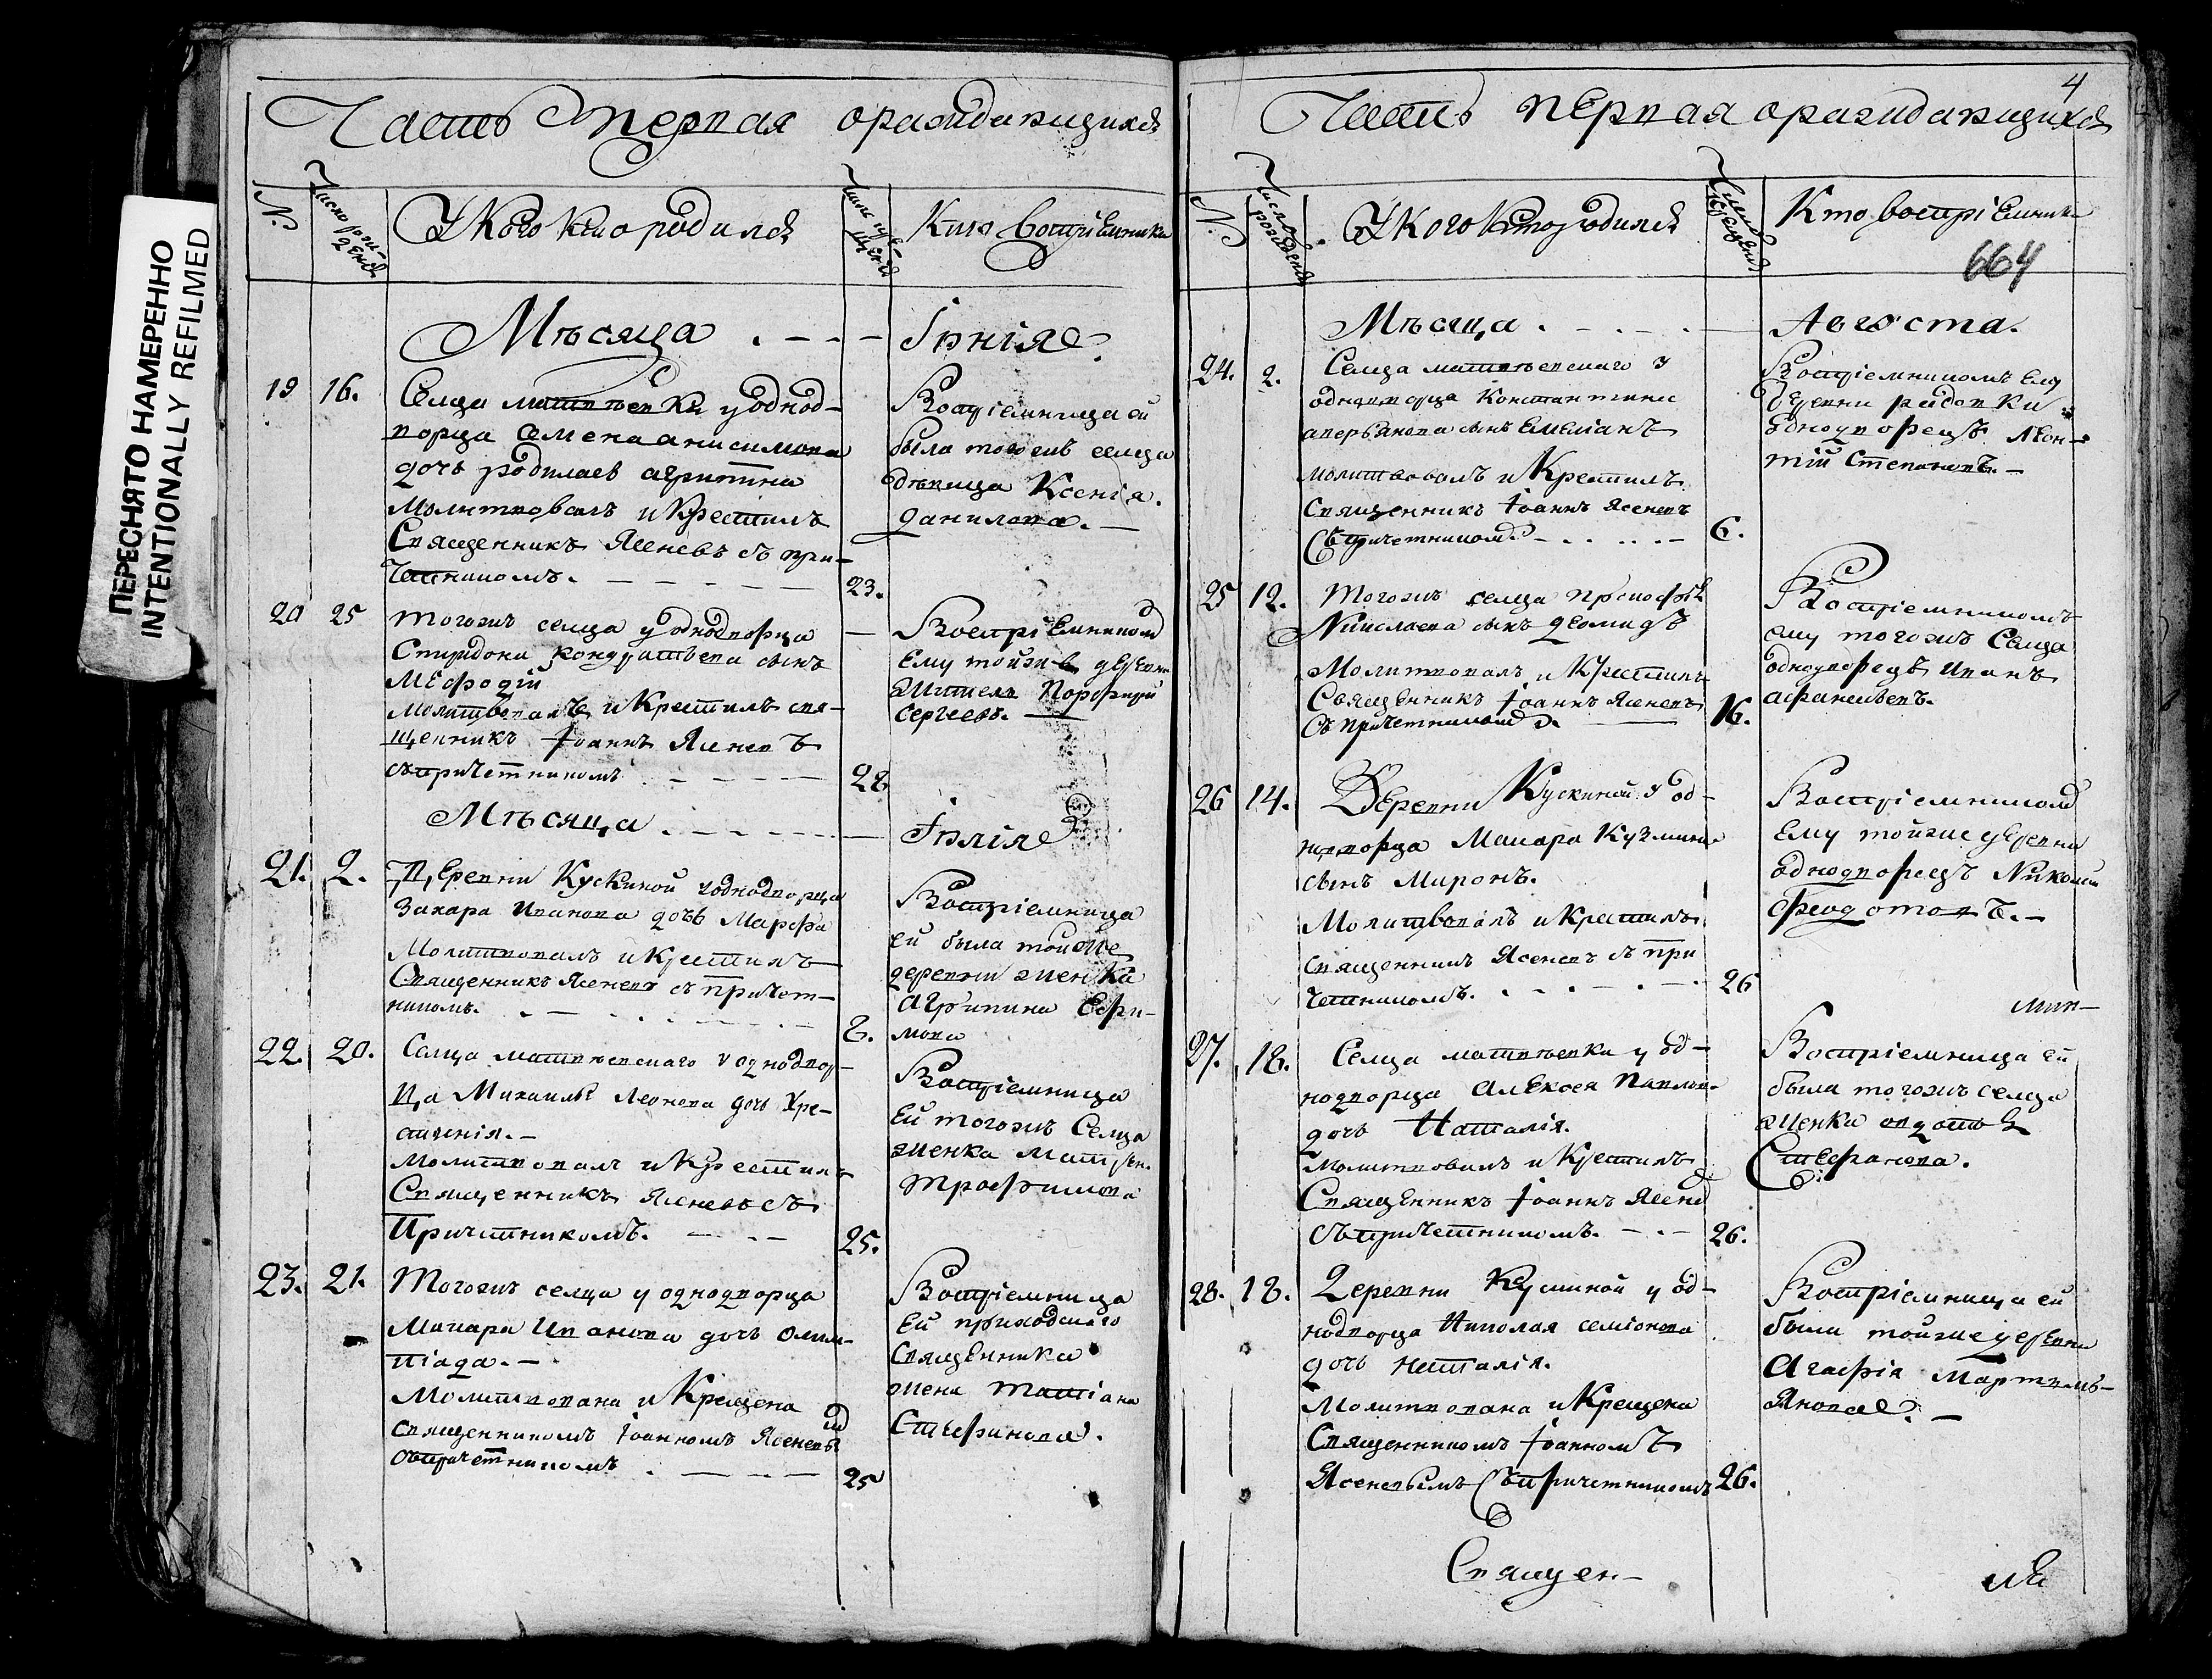 ПЕРЕСНЯТО НАМЕРЕННО
INTENTIONALLY REFILMED
Часть первая ораждающихся
№.
Число рождения
У Кого Кто родился
Число крещения
Кто воспріемники
Мѣсяца . – – . –
Іюнія.
19
16.
Селца матвѣевки у однод–
ворца Семена анисимова
дочь родилась агрипина
Молитвовалъ и Крестилъ
Священникъ Ясеневъ съ при–
четникомъ.
23.
Воспріемница ей
была тогожъ селца
дѣвица Ксенія.
данилова. –
20
25
тогожъ селца у однодворца
Спиридона кондратьева сынъ
Мефодій
молитвовалъ и Крестилъ свя–
щенникъ Іоаннъ Ясеневъ
съ причетникомъ
28
Воспріемникомъ
Ему тойже деревни
житель Порфирій
Сергеевъ. –
Мѣсяца
Іюлія
21.
2.
Деревни Кускиной у однодворца
Захара Иванова дочь Марфа
Молитвовалъ и Крестилъ
Священникъ Ясеневъ съ причет–
никомъ.
8.
Воспріемница
ей была тойже
деревни женка
Агрипина Ефи–
мова
22.
20.
Селца матвѣевскаго у однодвор–
ца Михаила Леонова дочь Хри–
стинія. –
Молитвовалъ и Крестилъ
Священникъ Ясеневъ съ
Причетникомъ.
25.
Воспріемница
Ей тогожъ Селца
женка Матрен.
трофимова
23.
21.
Тогожъ селца у однодворца
Макара Иванова дочь Олим–
піада. –
Молитвована и Крещена
священникомъ Іоанномъ Ясеневымъ
съ причетникомъ
25
Воспріемница
Ей приходскаго
Священника
жена татіана
Стефанова.
4
Часть первая ораждающихся
№.
Число рождения
У Кого Кто родился
Число крещения
Кто воспріемники
664
Мѣсяца . – . – .
Августа.
24.
2.
Селца матвѣевскаго у
однодворца Константина
аверьянова сынъ Емеліанъ
молитвовалъ и Крестилъ
Священникъ Іоаннъ Ясеневъ
Съ причетникомъ
6.
Воспріемникомъ Ему
деревни
однодворецъ Леон–
тій Степановъ. –
25
12.
Тогожъ селца
сынъ Деомидъ
Молитвовалъ и Крестилъ
Священникъ Іоаннъ Ясеневъ
Съ причетникомъ.
16.
Воспріемникомъ
ему тогожъ Селца
однодворецъ Иванъ
афанасьевъ.
26
14.
Деревни Кускиной у од–
нодворца Макара Кузмина
сынъ Миронъ.
Молитвовалъ и Крестилъ
священникъ Ясеневъ съ при
четникомъ.
26
Воспріемникомъ
Ему тойже деревни
однодворецъ Николай
Феодотовъ. –
27.
18.
Селца матвѣевки у од–
нодворца Алексея Павлов.
дочь Наталія.
Молитвовалъ и Крестилъ
Священникъ Іоаннъ Ясеневъ
Съ причетникомъ. – . –
26.
Воспріемница ей
была тогожъ селца
женка евдотья
Стефанова.
28.
18.
Деревни Кускиной у од–
нодворца Николая семіонова
дочь Наталія.
Молитвована и Крещена
Священникомъ Іоанномъ
Ясеневымъ Съ причетникомъ
26.
Воспріемница ей
была тойже деревни
Агафія Мартемь–
янова. –
Священ–